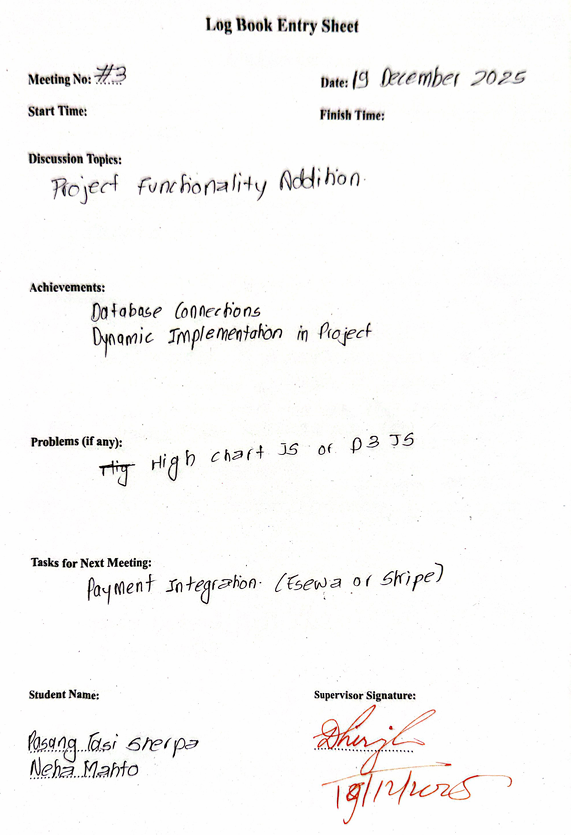 Log Book Entry Sheet
Meeting No: #3
Date: 19 December 2025
Start Time:
Finish Time:
Discussion Topics:
Project Functionality Addition.
Achievements:
Database Connections
Dynamic Implementation in Project
Problems (if any):
High chart JS or D3 JS
Tasks for Next Meeting:
Payment Integration. (Esewa or Stripe)
Student Name:
Supervisor Signature:
Pasang Tasi Sherpa
Neha Mahto
19/12/2025